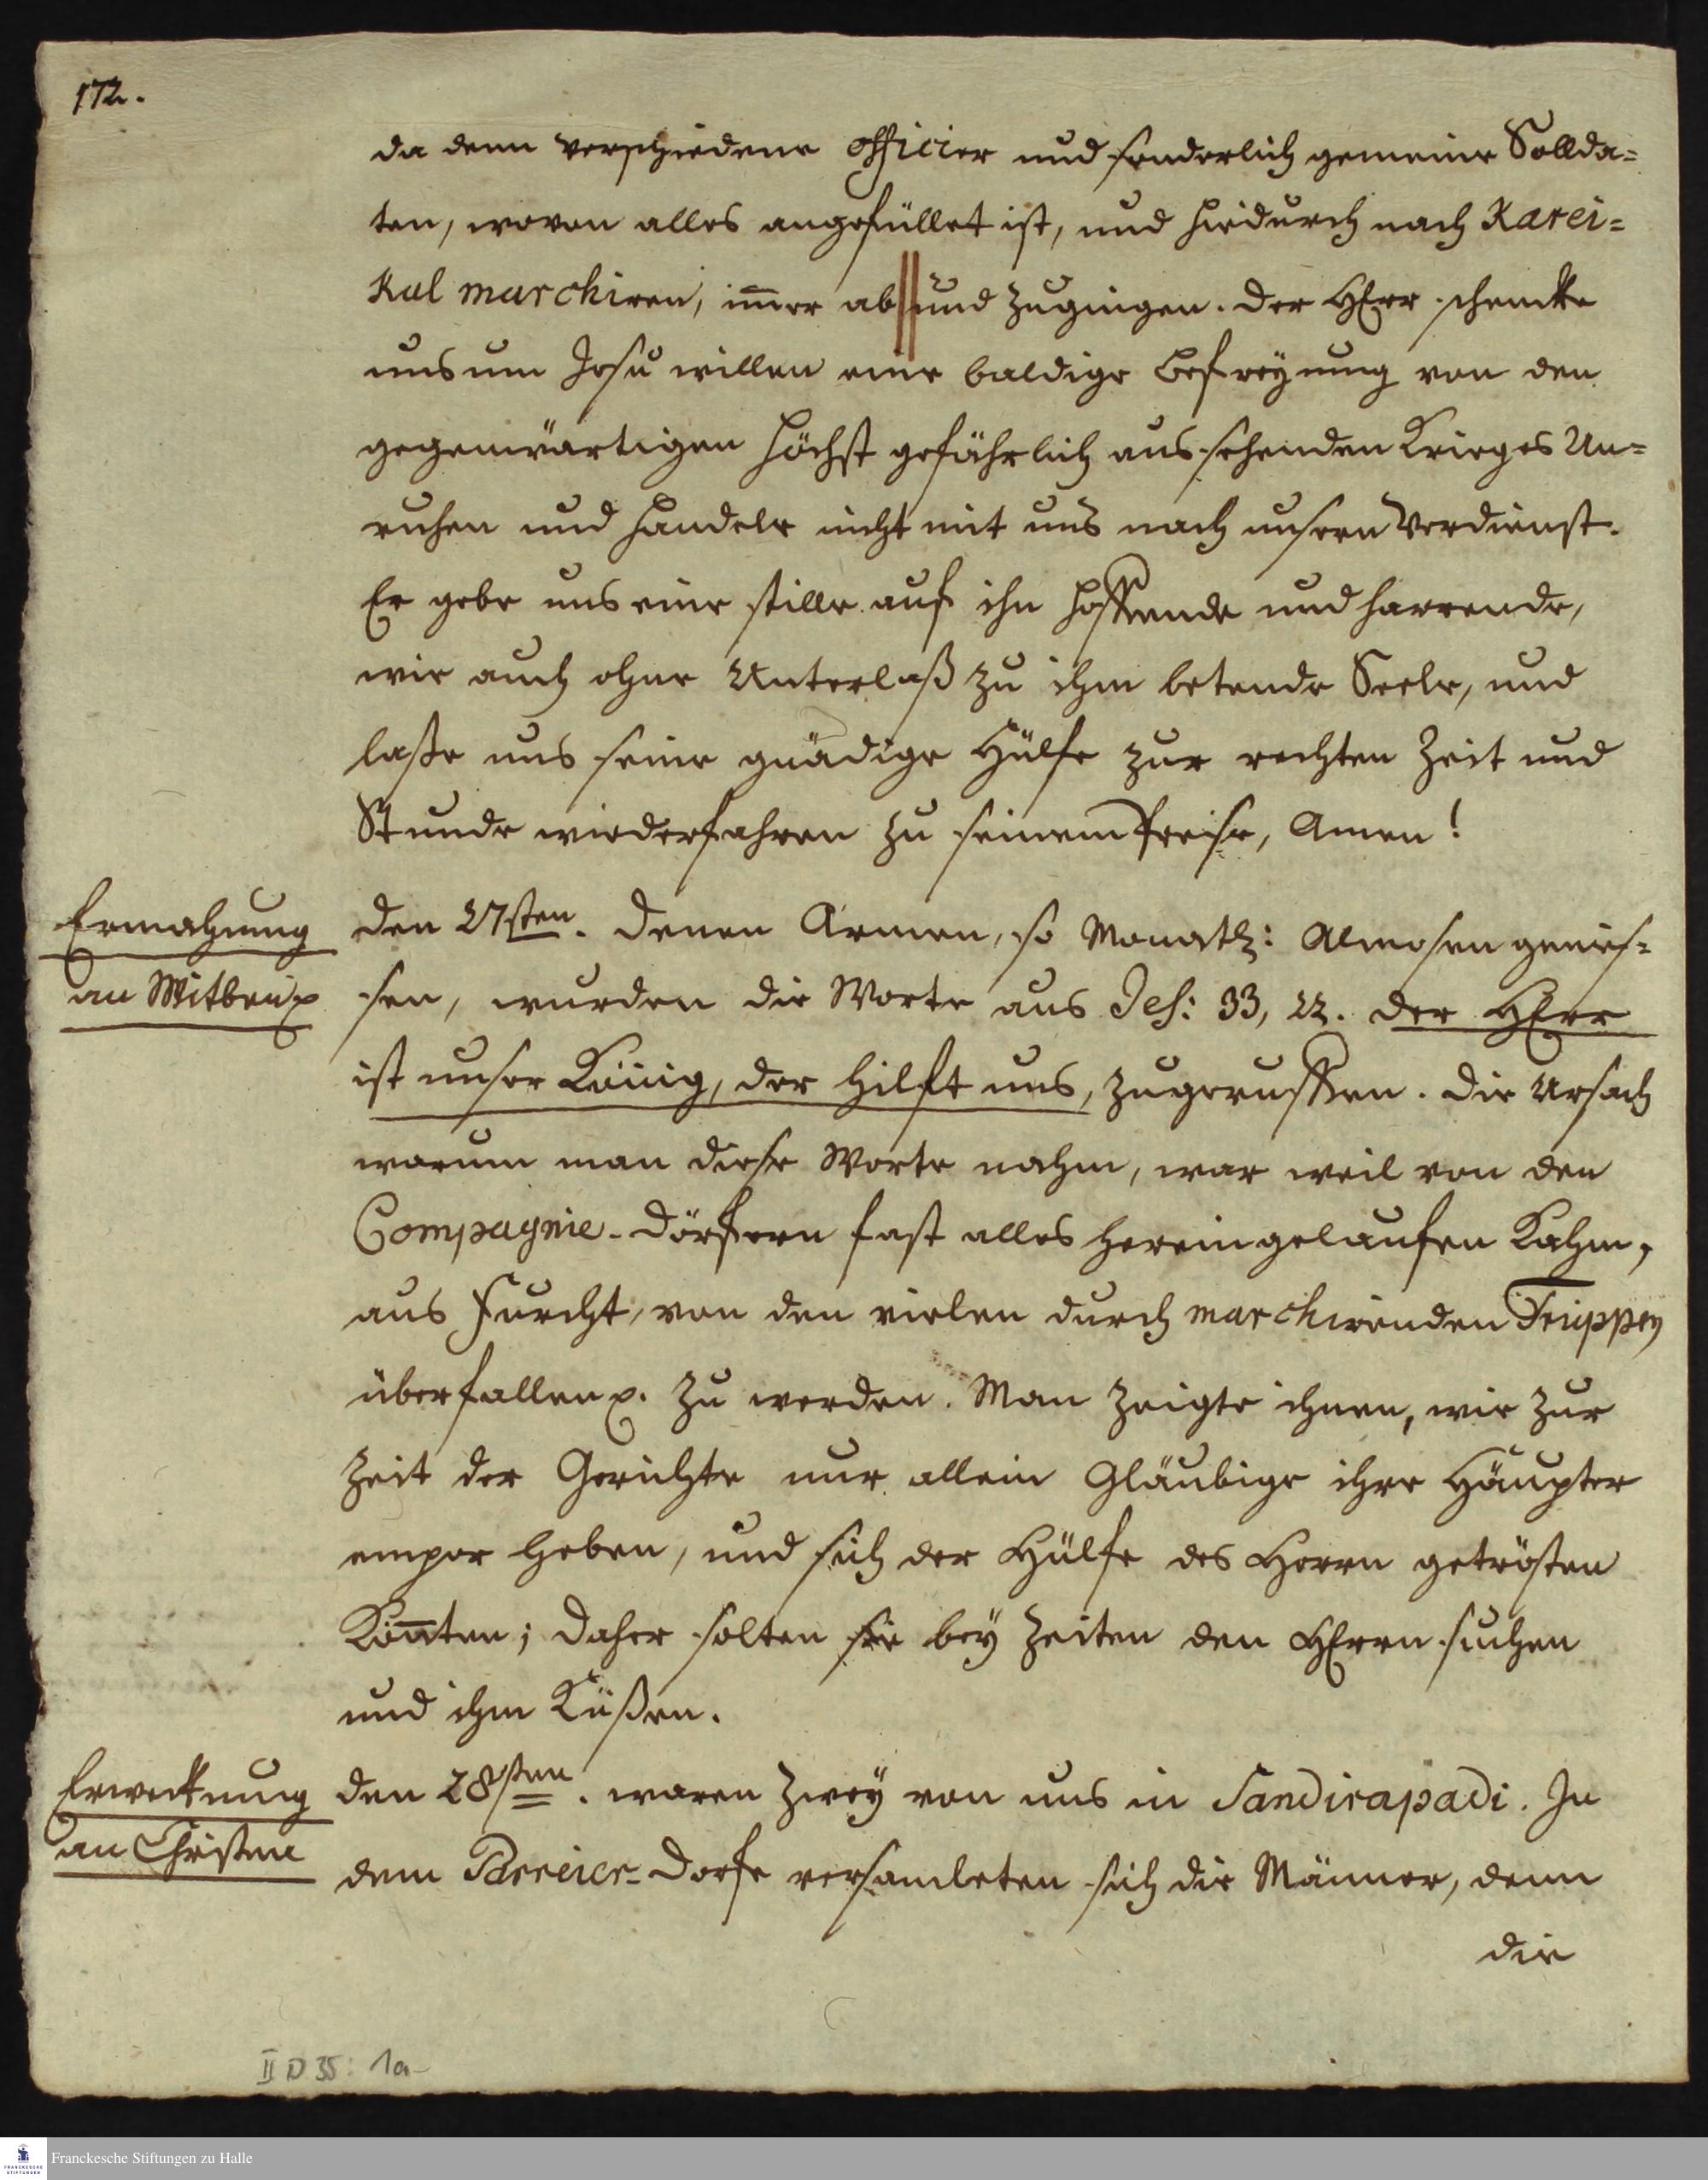 172.
da denn verschiedene Officier und sonderlich gemeine Sollda=
ten, wovon alles angefüllet ist, und hiedurch nach Karei=
kal marchiren, im̄er ab und zugingen. Der HErr schencke
uns um Jesu willen eine baldige Befreyung von den
gegenwärtigen höchst gefährlich aussehenden Krieges Un=
ruhen und handele nicht mit uns nach unsern Verdienst.
Er gebe uns eine stille auf ihn hoffende und harrende,
wie auch ohne Unterlaß zu ihm betende Seele, und
laße uns seine gnädige Hülfe zur rechten Zeit und
Stunde wiederfahren zu seinem Preise, Amen!
Ermahnung
an Mitbrüd.
den 27sten. Denen Armen, so Monatl: Almosen genies=
sen, wurden die Worte aus Jes: 33, 22. der HErr
ist unser König, der hilft uns, zugeruffen. Die Ursach
warum man diese Worte nahm, war weil von den
Compagnie-Dörfern fast alles hereingelaufen kahm,
aus Furcht, von den vielen durch marchirenden Truppen
überfallen p. zu werden. Man zeigte ihnen, wie zur
Zeit der Gerichte nur allein Gläubige ihre Häupter
empor heben, und sich der Hülfe des Herrn getrösten
kön̄ten; daher solten sie bey Zeiten den HErrn suchen
und ihm küßen.
Erweckung
an Christen
den 28sten. waren zwey von uns in Sandirapadi. In
dem Parreier-Dorfe versamleten sich die Männer, denn
die
II D 35: 1a
Franckesche Stiftungen zu Halle